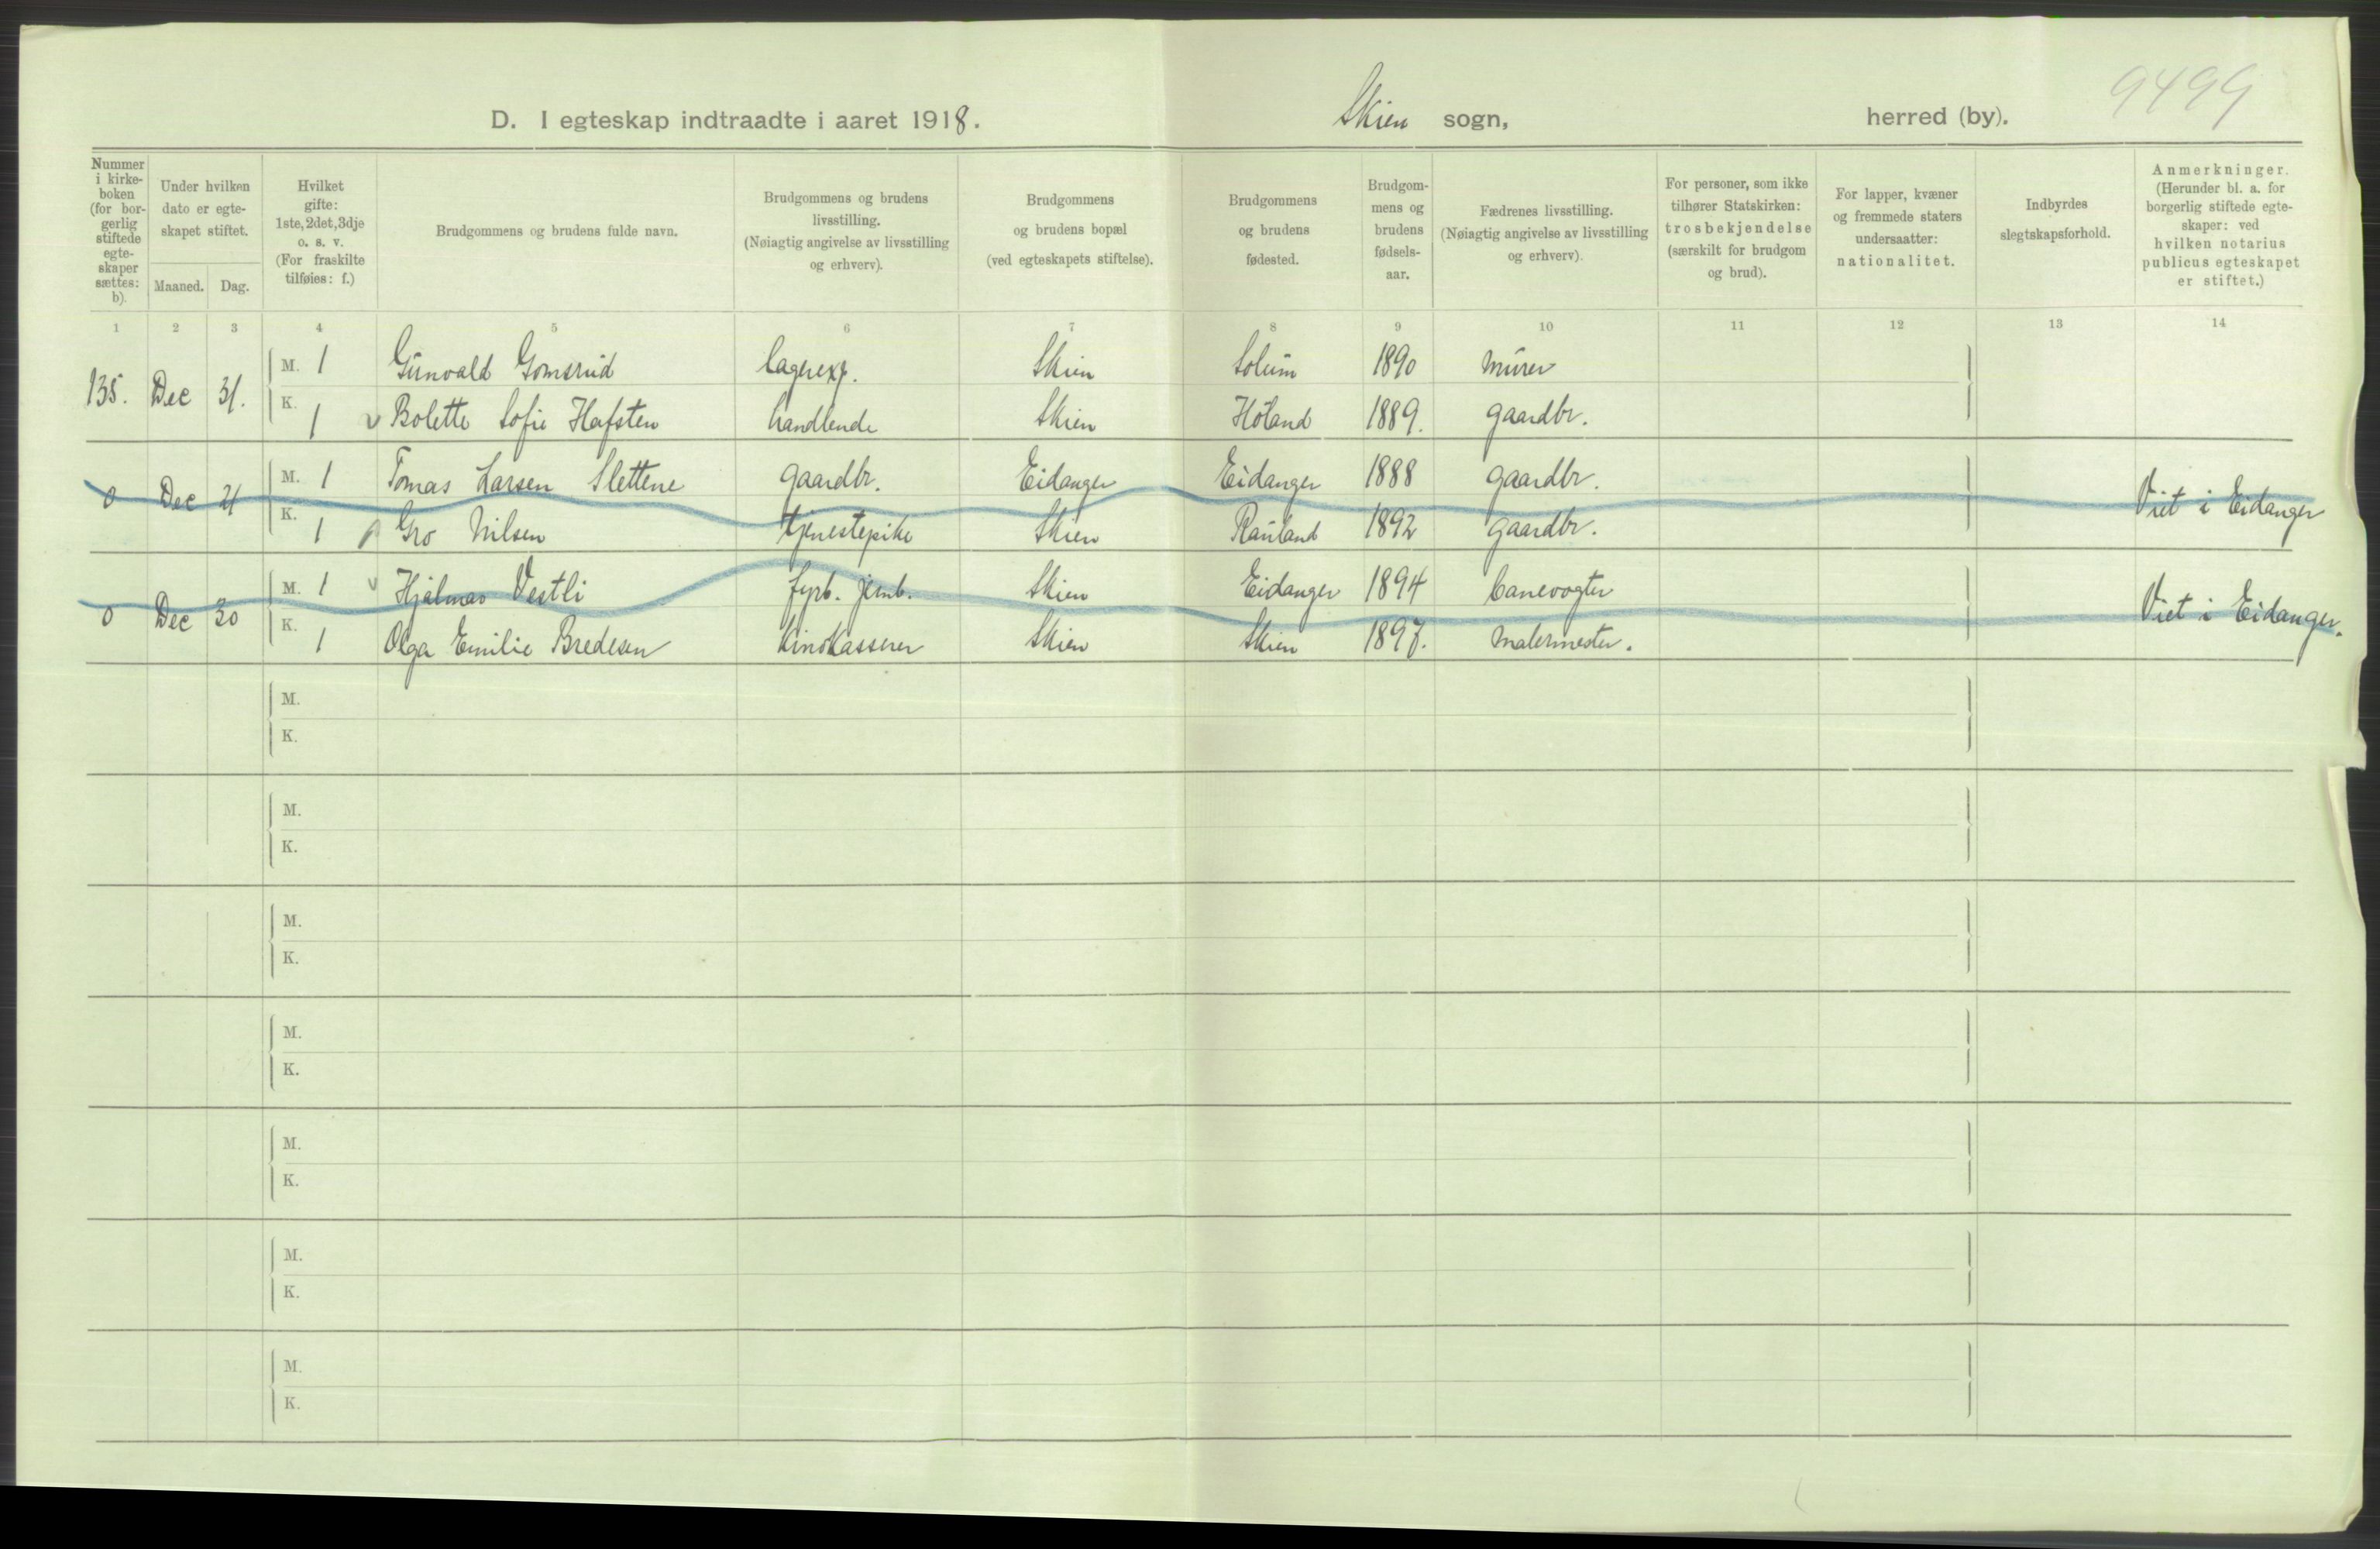 9499
D. I egteskap indtraadte i aaret 1918. Skien sogn, herred (by).
Nummer i kirkeboken (for borgerlig stiftede egteskaper sættes: b).
Under hvilken dato er egteskapet stiftet.
Maaned. Dag.
Hvilket gifte: 1ste, 2det, 3dje o. s. v. (For fraskilte tilføies: f.)
Brudgommens og brudens fulde navn.
Brudgommens og brudens livsstilling. (Nøiagtig angivelse av livsstilling og erhverv).
Brudgommens og brudens bopæl (ved egteskapets stiftelse).
Brudgommens og brudens fødested.
Brudgommens og brudens fødselsaar.
Fædrenes livsstilling. (Nøiagtig angivelse av livsstilling og erhverv).
For personer, som ikke tilhører Statskirken: trosbekjendelse (særskilt for brudgom og brud).
For lapper, kvæner og fremmede staters undersaatter: nationalitet.
Indbyrdes slegtskapsforhold.
Anmerkninger. (Herunder bl. a. for borgerlig stiftede egteskaper: ved hvilken notarius publicus egteskapet er stiftet.)
1 2 3 4 5 6 7 8 9 10 11 12 13 14
M. 1 Gunvald Gomsrud lagerexp. Skien Solum 1890 murer
135. Dec 31.
K. 1 Bolette Sofie Hafsten handlende Skien Höland 1889. gaardbr.
M. 1 Tomas Larsen Slettene gaardbr. Eidanger Eidanger 1888 gaardbr.
0 Dec 21 Viet i Eidanger
K. 1 Gro Nilsen tjenestepike Skien Rauland 1892 gaardbr.
M. 1 Hjalmar Vestli fyrb. jernb. Skien Eidanger 1894 banevogter
0 Dec 30 Viet i Eidanger.
K. 1 Olga Emilie Bredesen kinokasserer Skien Skien 1897. malermester.
M.
K.
M.
K.
M.
K.
M.
K.
M.
K.
M.
K.
M.
K.